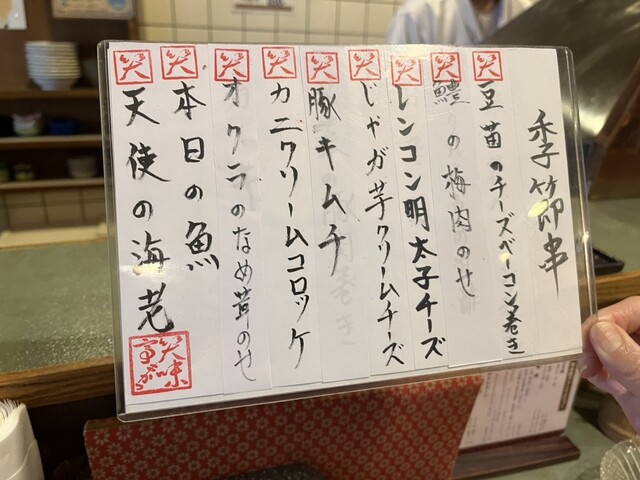 季節串
豆苗のチーズベーコン巻き
鱧の梅肉のせ
レンコン明太子チーズ
じゃが芋クリームチーズ
豚キムチ
カニクリームコロッケ
オクラのなめ茸のせ
本日の魚
天使の海老